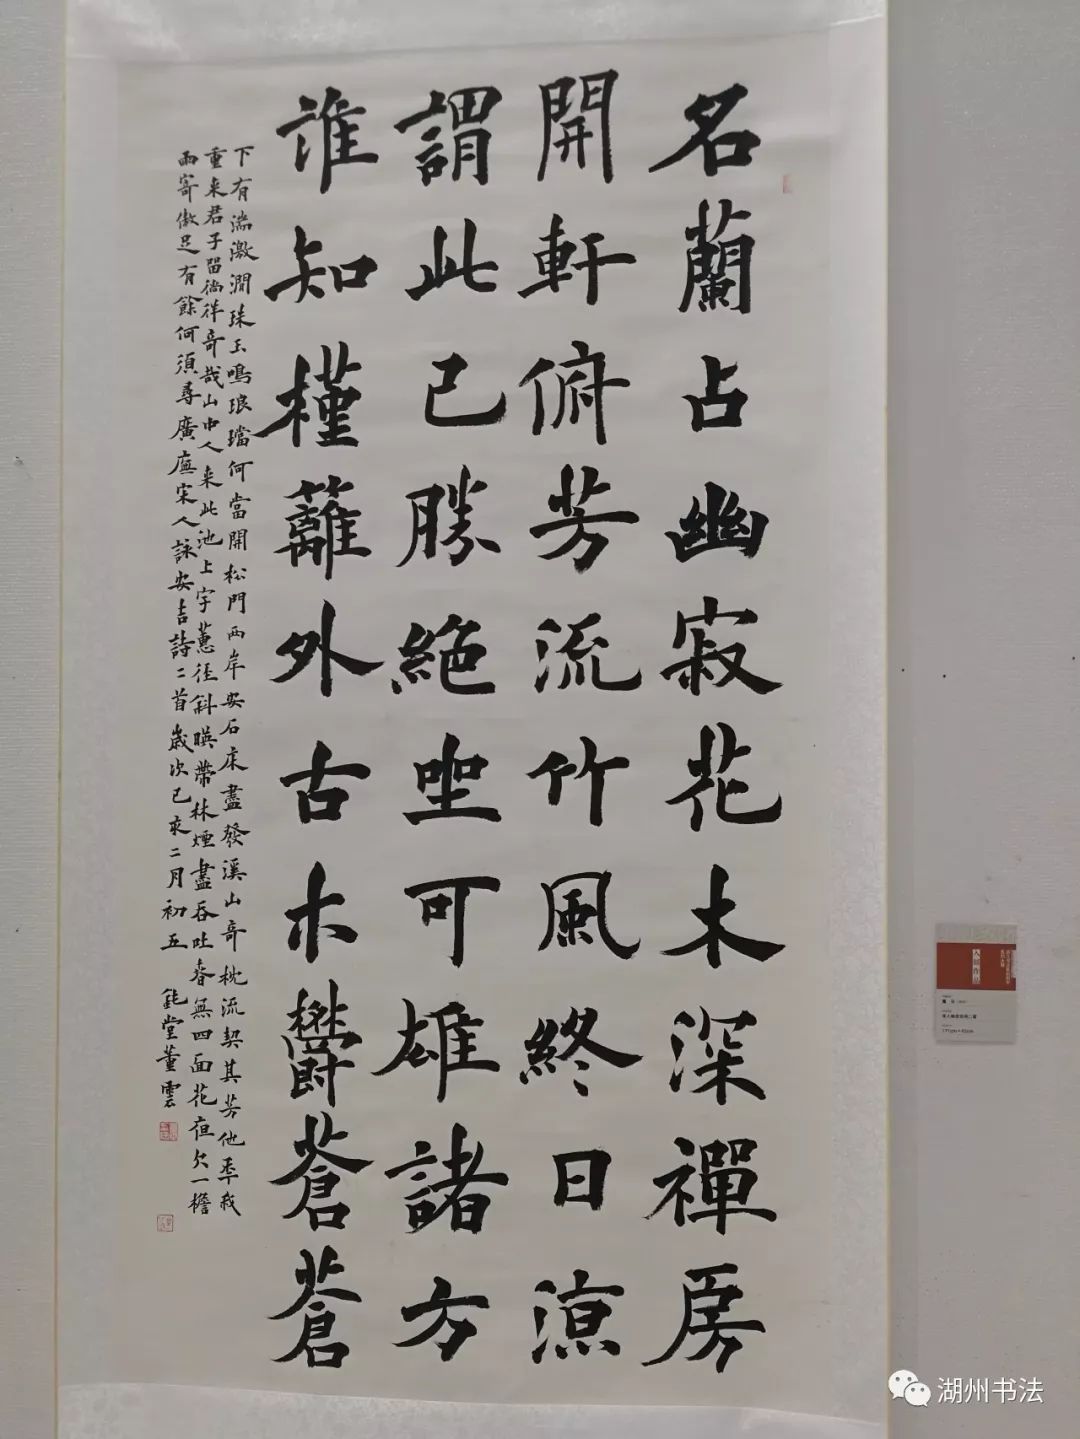 名蘭占幽寂花木深禪房
開軒俯芳流竹風終日涼
謂此已勝絕坐可雄諸方
誰知槿蘺外古木欝蒼蒼
下有湍激澗珠玉鳴琅璫何當開松門兩岸安石床盡發溪山奇枕流契其芳他季我
重来君子留徜徉奇哉山中人来此池上宇蕙徑斜暎帶林煙盡吞吐春無四面花夜欠一檐
雨寄傲足有餘何須尋廣廡宋人詠安吉詩二首歲次己亥二月初五 能堂董雲
入展作品
湖州书法